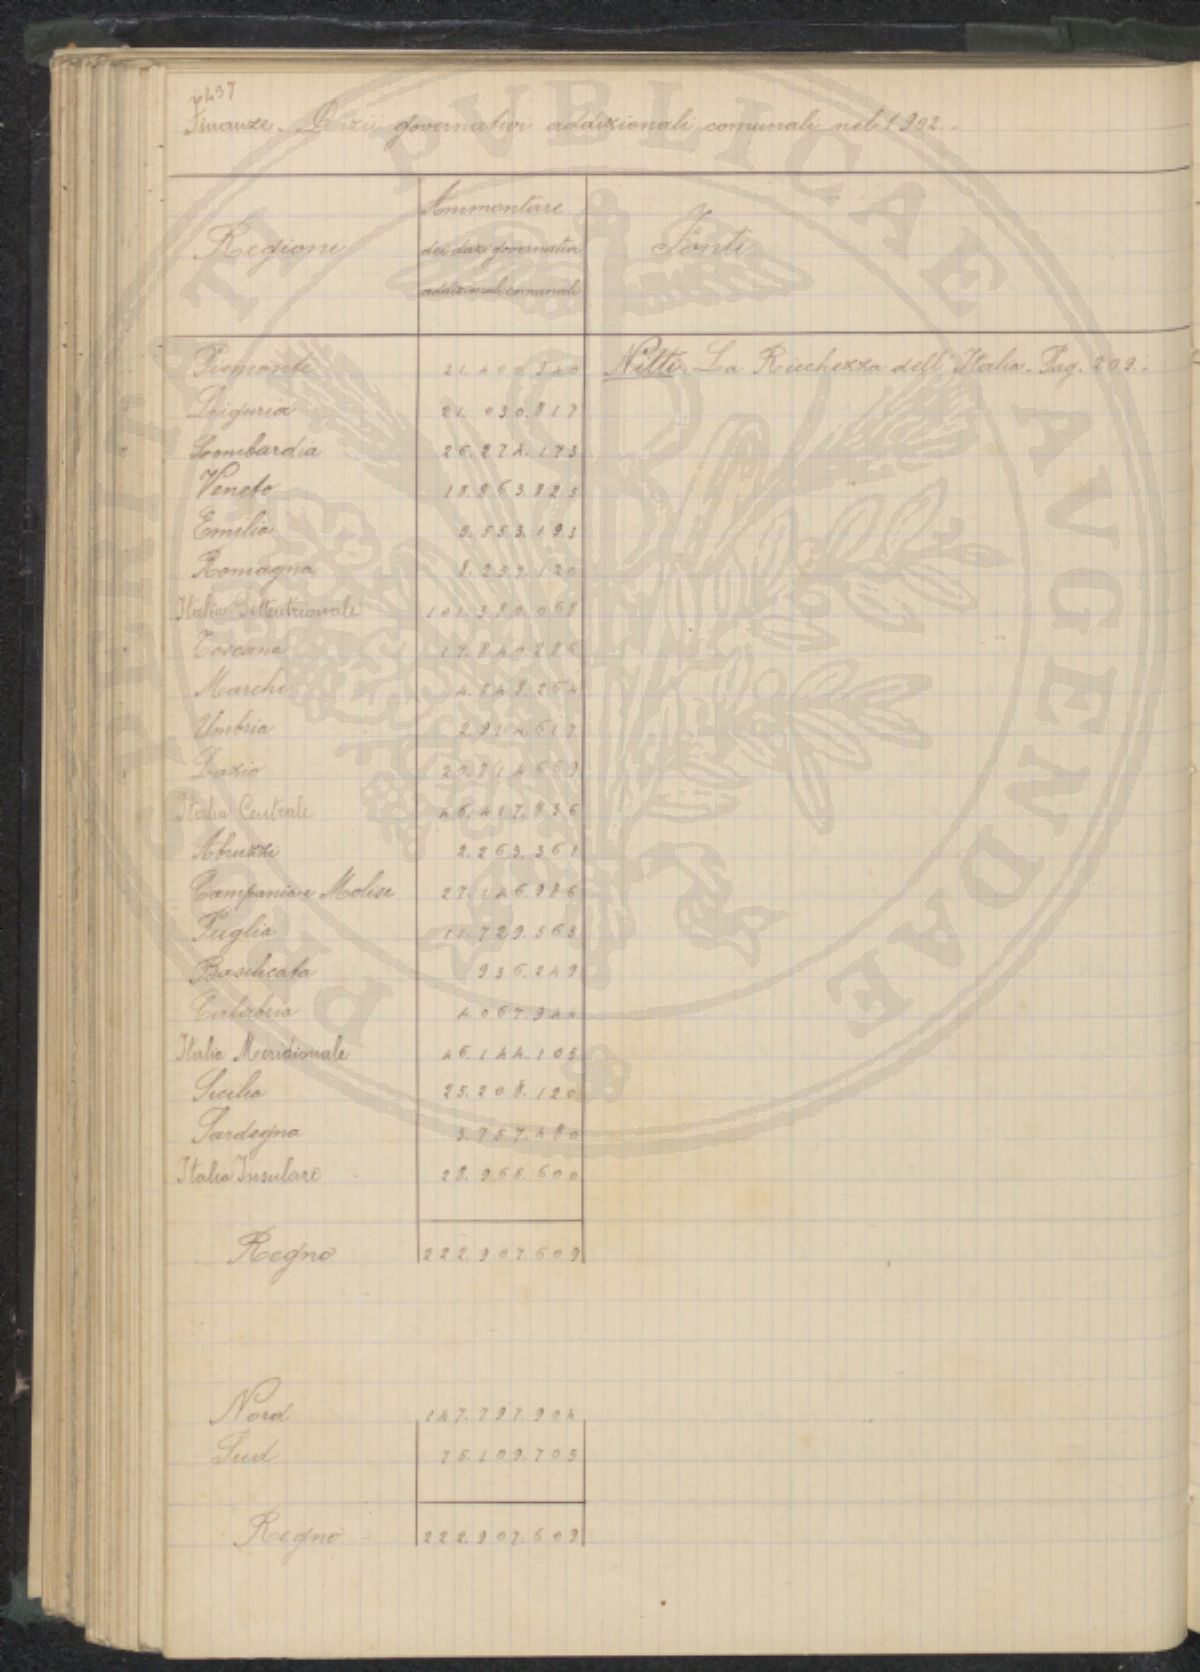 437
Finanze. Dazii governativi addizionali comunali nel 1902.
Regioni
Ammontare
dei dazi governativi
addizionali comunali
Fonti
Piemonte 21.400.940 Nitti. La Ricchezza dell'Italia. Pag. 209.
Liguria 21.030.817
Lombardia 26.274.173
Veneto 18.863.825
Emilia 5.553.193
Romagna 8.257.120
Italia Settentrionale 101.380.068
Toscana 17.840.286
Marche 4.848.264
Umbria 2.914.617
Lazio 20.814.669
Italia Centrale 46.417.836
Abruzzi 2.263.361
Campania e Molise 27.146.986
Puglia 11.729.565
Basilicata 936.249
Calabria 4.067.944
Italia Meridionale 46.144.105
Sicilia 25.208.120
Sardegna 3.757.480
Italia Insulare 28.965.600
Regno 222.907.609
Nord 147.797.904
Sud 75.109.705
Regno 222.907.609